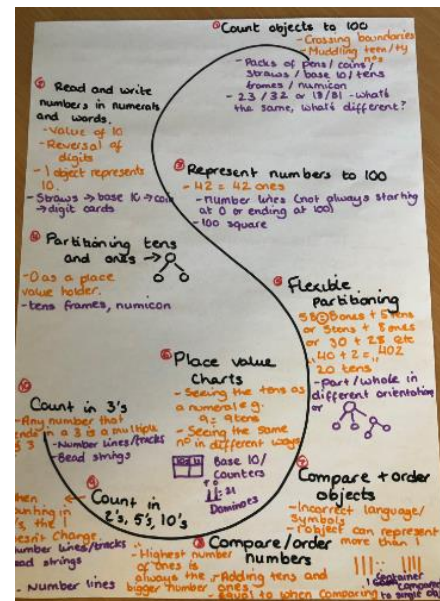 ① Count objects to 100
- Crossing boundaries
- Muddling teen/ty
n°s
- Packs of pens / coins /
straws / base 10 / tens
frames / numicon
- 23 / 32 or 18/81 - what's
the same, what's different?
Read and write
numbers in numerals
and words.
- Value of 10
- Reversal of
digits
- 1 object represents
10.
- Straws → base 10 → coin
→ digit cards
③ Represent numbers to 100
- 42 = 42 ones
- number lines (not always starting
at 0 or ending at 100)
- 100 square
④ Partitioning tens
and ones →
- 0 as a place
value holder.
- tens frames, numicon
Flexible
partitioning
58 = 8 ones + 5 tens
or 5 tens + 8 ones
or 30 + 28 etc
"40 + 2 = 402
20 tens
- part/whole in
different orientation
or
Place value
charts
- Seeing the tens as
a numeral e.g.
9 = 9 tens
- Seeing the same
n° in different ways
Base 10/
Counters
Dominoes
⑦ Compare + order
objects
- Incorrect language/
symbols
- 1 object can represent
more than 1
container
to single obj
⑧ Compare/order
numbers
- Highest number
of ones is
always the
bigger number
- Adding tens and
ones
- Equal to when comparing
⑨ Count in
2's, 5's, 10's
the 1
doesn't change
number lines/tracks
bead strings
- Number lines
⑩
Count in 3's
- Any number that
ends in a 3 is a multiple
of 3
- Number lines/tracks
- Bead strings